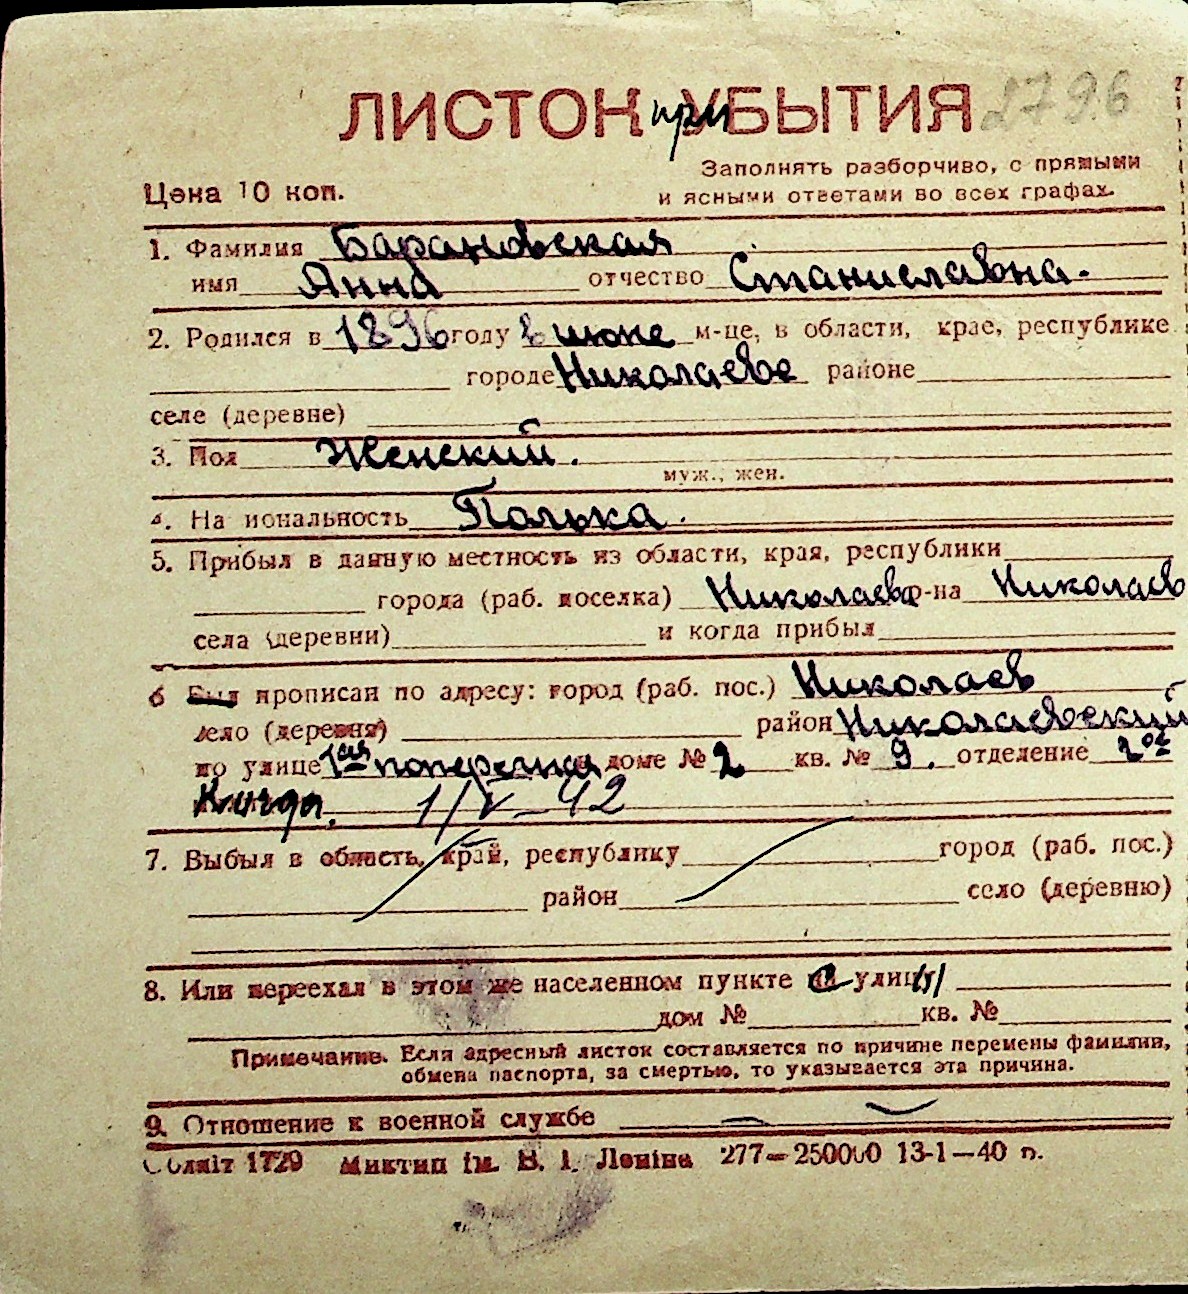 ЛИСТОК приУБЫТИЯ 2796
Цена 10 коп.
Заполнять разборчиво, с прямыми
и ясными ответами во всех графах.
1. Фамилия Барановская
имя Анна отчество Станиславна.
2. Родился в 1896 году в июне м-це, в области, крае, республике
городе Николаеве районе
селе (деревне)
3. Пол Женский.
муж., жен.
4. На иональность Полька.
5. Прибыл в данную местность из области, края, республики
города (раб. поселка) Николаева р-на Николаев
села (деревни) и когда прибыл
6 Был прописан по адресу: город (раб. пос.) Николаев
село (деревня) район Николаевский
по улице 1ая поперечная доме № 2 кв. № 9. отделение 2ое
Когда. 1/V-42
7. Выбыл в область, край, республику город (раб. пос.)
район село (деревню)
8. Или переехал в этом же населенном пункте с улицы
дом № кв. №
Примечание. Если адресный листок составляется по причине перемены фамилии,
обмена паспорта, за смертью, то указывается эта причина.
9. Отношение к военной службе
Облліт 1729 Миктип ім. В. І. Леніна 277—250000 13-1—40 р.